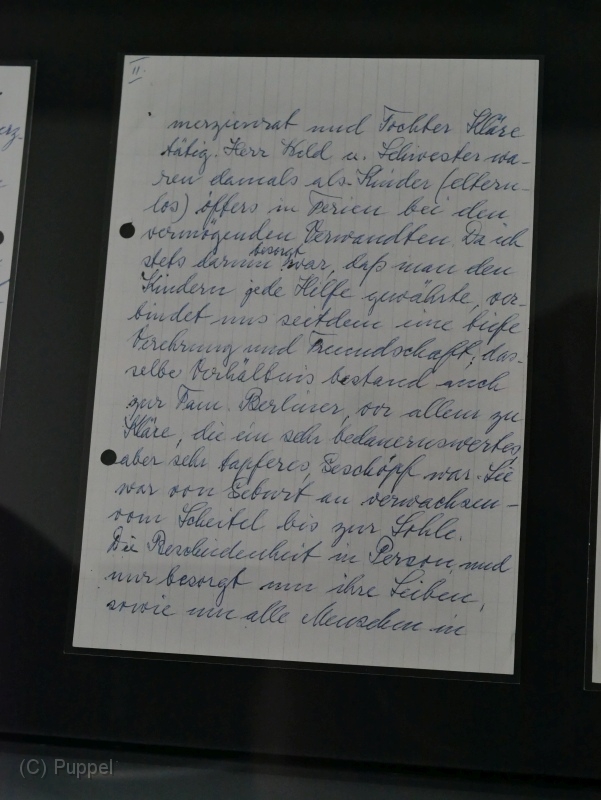 II.
merzienrat und Tochter Kläre
tätig. Herr Keld u. Schwester wa-
ren damals als Kinder (eltern-
los) öffers in Ferien bei den
vermögenden Verwandten. Da ich
stets darum besorgt war, daß man den
Kindern jede Hilfe gewährte, ver-
bindet uns seitdem eine tiefe
Verehrung und Freundschaft; das-
selbe Verhältnis bestand auch
zur Fam. Berliner, vor allem zu
Kläre, die ein sehr bedauernswertes
aber sehr tapferes, Geschöpf war. Sie
war von Geburt an verwachsen -
vom Scheitel bis zur Sohle.
Die Bescheidenheit in Person und
nur besorgt um ihre Lieben,
sowie um alle Menschen in
(C) Puppel